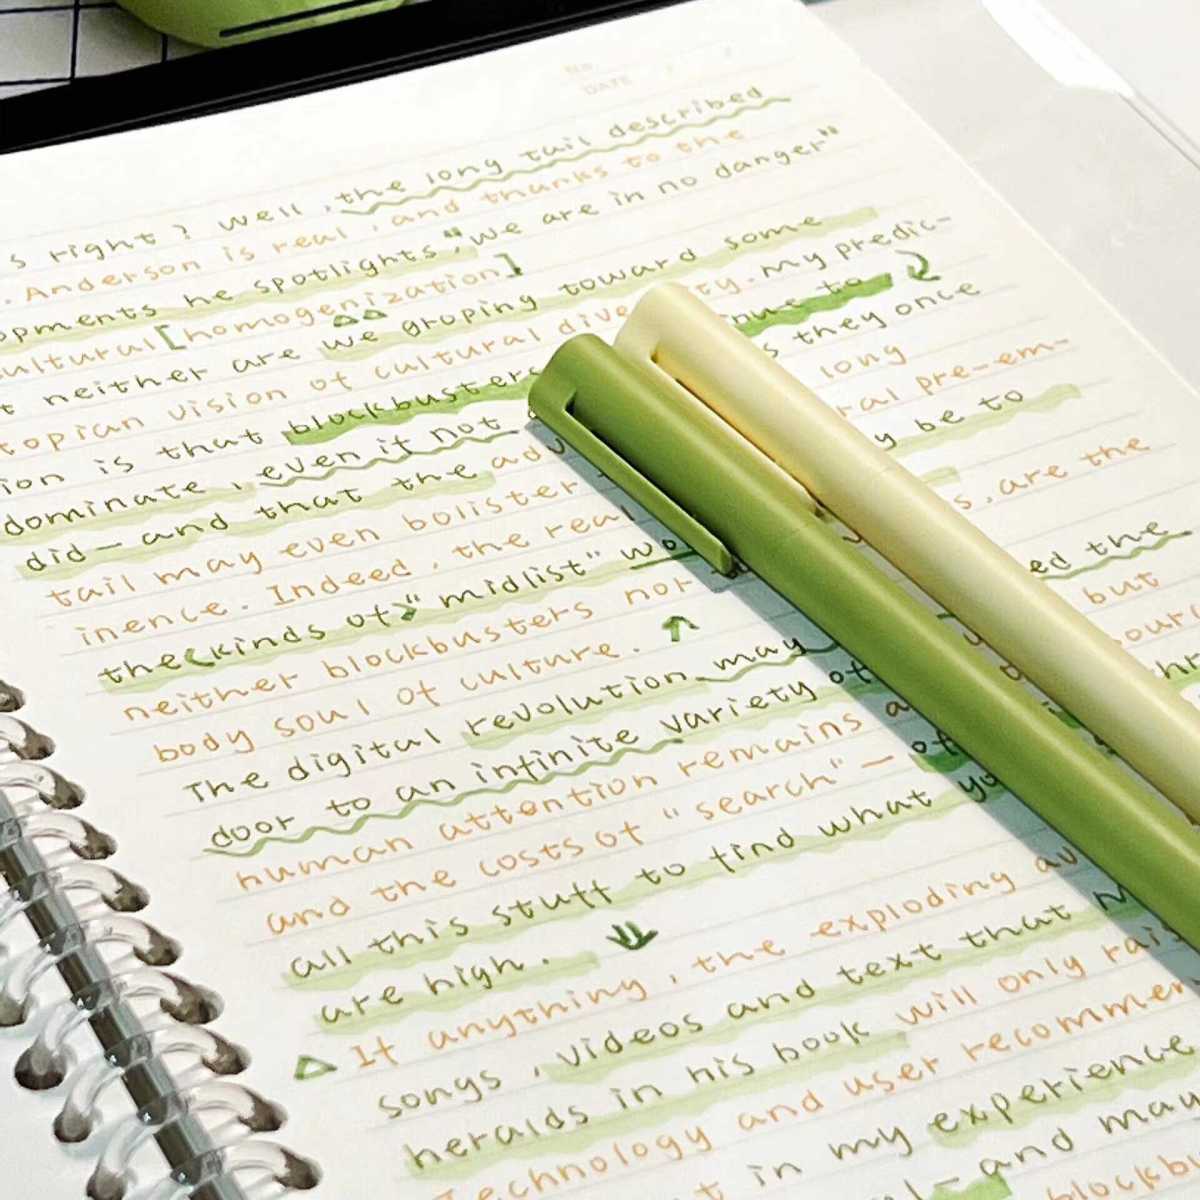 No.
DATE
s right? Well, the long tail described
. Anderson is real, and thanks to the
opments he spotlights, "we are in no danger"
ultural [homogenization]
t neither are we groping toward some
topian vision of cultural dive ty. My predic-
ion is that blockbusters ue to
dominate, even if not s they once
did — and that the adv long
tail may even bolster ral pre-em-
inence. Indeed, the real y be to
the <kinds of> "midlist" wo s, are the
neither blockbusters nor
body soul of culture. ed the
The digital revolution may but
door to an infinite variety of
human attention remains
and the costs of "search" — of
all this stuff to find what yo
are high.
If anything, the exploding
songs, videos and text that
heralds in his book will only rai
Technology and user recommen
t in my experience
l — and may
lockbu